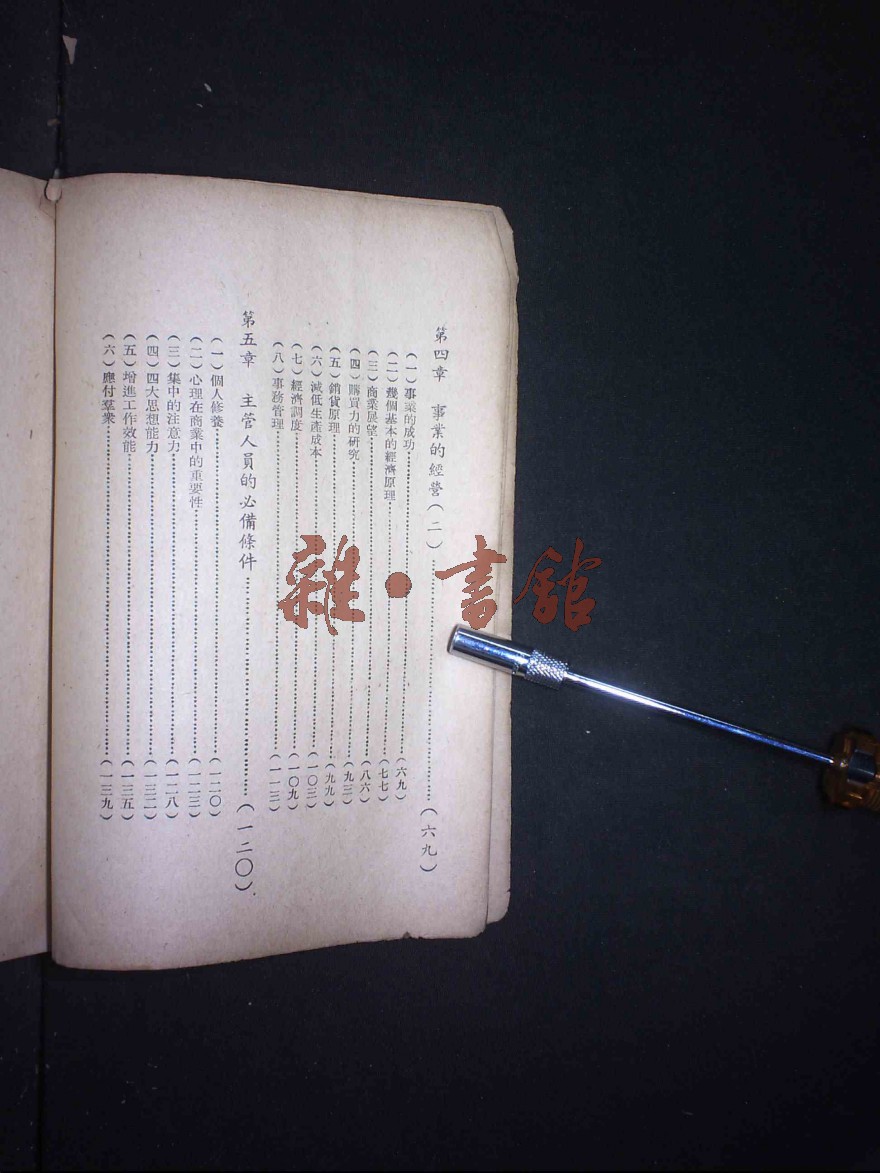 第四章 事業的經營(二)……(六九)
(一)事業的成功……(六九)
(二)幾個基本的經濟原理……(七七)
(三)商業展望……(八六)
(四)購買力的研究……(九三)
(五)銷貨原理……(九九)
(六)減低生產成本……(一〇三)
(七)經濟調度……(一〇九)
(八)事務管理……(一一三)
第五章 主管人員的必備條件……(一二〇)
(一)個人修養……(一二〇)
(二)心理在商業中的重要性……(一二三)
(三)集中的注意力……(一二八)
(四)四大思想能力……(一三二)
(五)增進工作效能……(一三五)
(六)應付羣衆……(一三九)
雜·書館